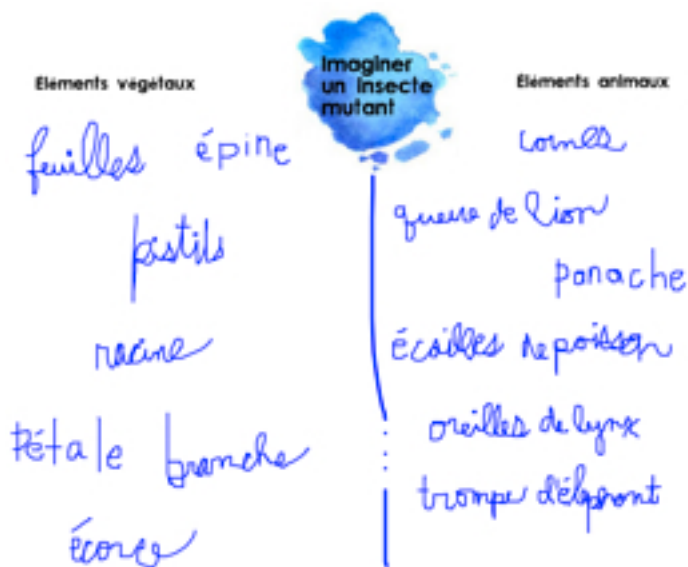 Imaginer
un insecte
mutant
Eléments végétaux
feuilles épine
pistils
racine
Pétale branche
écorce
Eléments animaux
cornes
queue de lion
panache
écailles de poisson
oreilles de lynx
trompe d'éléphant